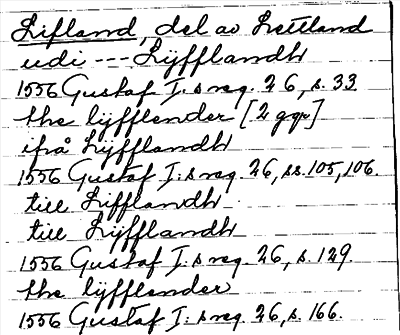 Lifland, del av Lettland
udi --- Lÿfflandh
1556 Gustaf I:s reg. 26, s. 33
the lÿfflender [2 ggr]
ifrå Lÿfflandh
1556 Gustaf I:s reg. 26, ss. 105, 106.
till Lifflandh
till Lÿfflandh
1556 Gustaf I:s reg. 26, s. 129.
the lÿfflender
1556 Gustaf I:s reg. 26, s. 166.